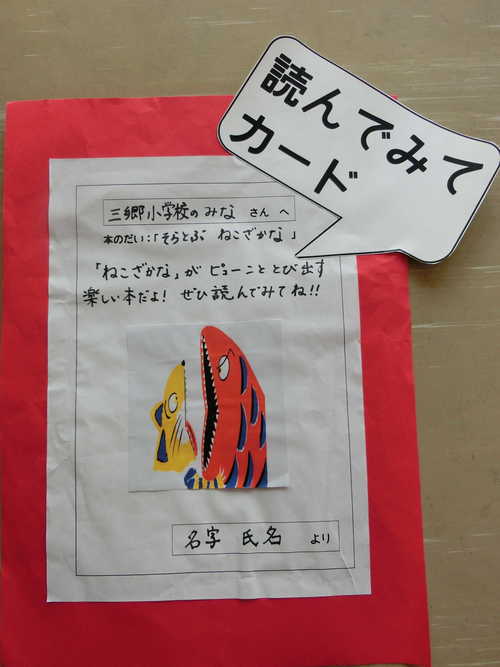 読んでみて
カード
三郷小学校のみな さん へ
本のだい：「そらとぶ ねこざかな」
「ねこざかな」が ピューこ ととび出す
楽しい本だよ！ ぜひ読んでみてね！！
名字 氏名 より